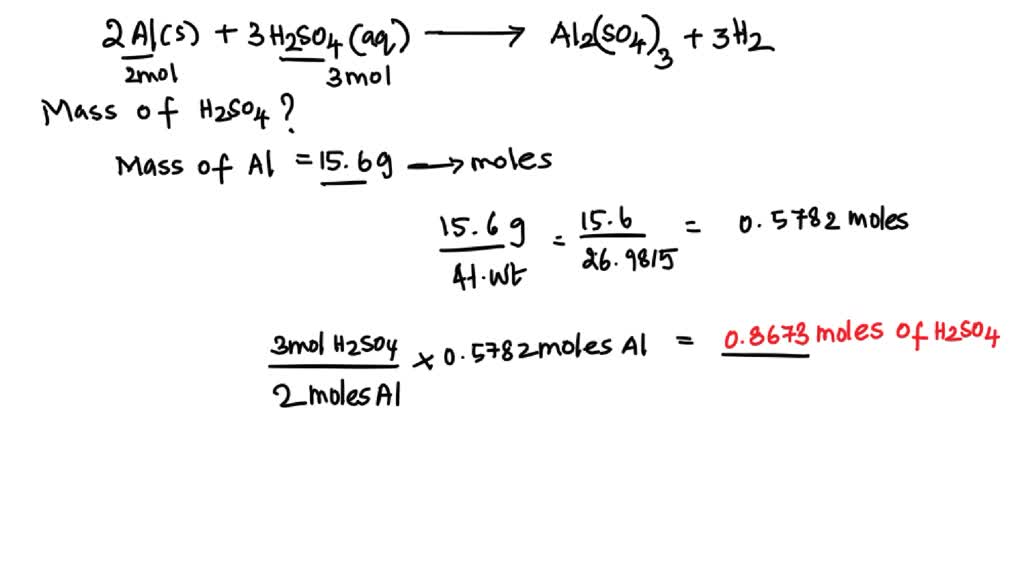 2Al(s) + 3H2SO4(aq) → Al2(SO4)3 + 3H2
2mol 3mol
Mass of H2SO4?
Mass of Al = 15.6g → moles
15.6g / At.wt = 15.6 / 26.9815 = 0.5782 moles
3mol H2SO4 / 2 moles Al × 0.5782 moles Al = 0.8673 moles of H2SO4